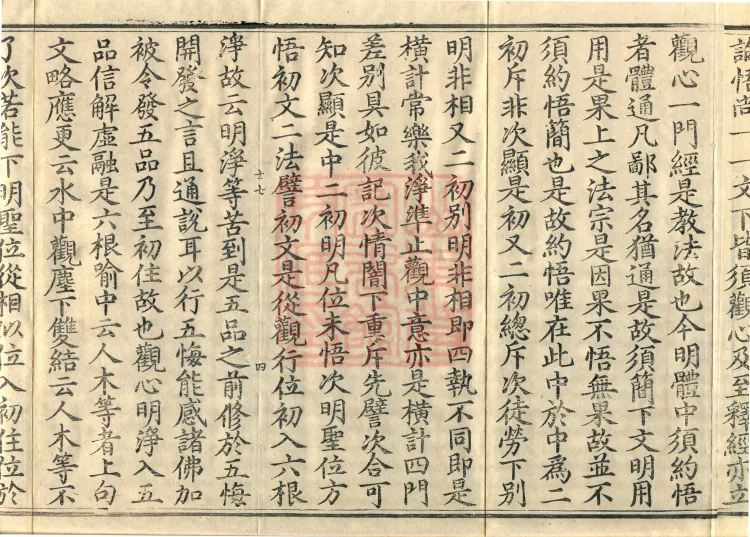 悟尚一一文下皆須觀心及至釋經亦立
觀心一門經是教法故也今明體中須約悟
者體通凡鄙其名猶通是故須簡下文明用
用是果上之法宗是因果不悟無果故並不
須約悟簡也是故約悟唯在此中於中為二
初斥非次顯是初又二初總斥次徒勞下別
明非相又二初別明非相即四執不同即是
橫計常樂我淨準止觀中意亦是橫計四門
差別具如彼記次情闇下重斥先譬次合可
知次顯是中二初明凡位未悟次明聖位方
悟初文二法譬初文是從觀行位初入六根
十七
四
淨故云明淨等苦到是五品之前修於五悔
開發之言且通說耳以行五悔能感諸佛加
被令發五品乃至初住故也觀心明淨入五
品信解虛融是六根喻中云人木等者上句
文略應更云水中觀塵下雙結云人木等不
了次若能下明聖位從相似位入初住位於